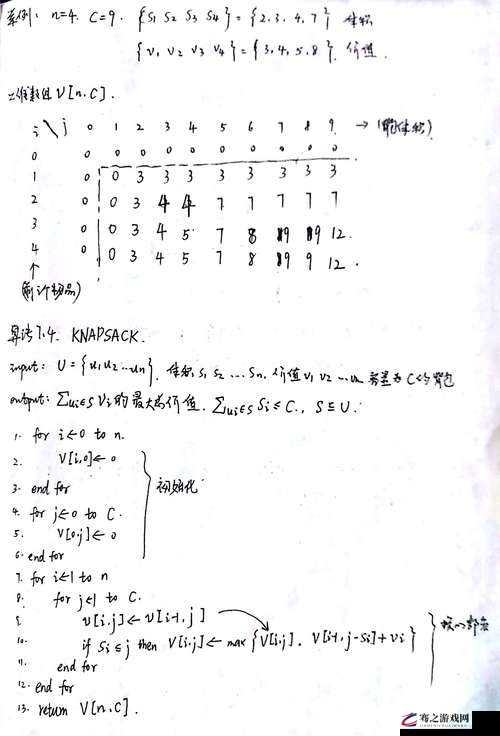 案例: n=4. C=9. {S1 S2 S3 S4}={2.3.4.7} 体积
{V1 V2 V3 V4}={3.4.5.8}. 价值.
二维数组 V[n.C].
i \ j 0 1 2 3 4 5 6 7 8 9 → (背包体积)
0 0 0 0 0 0 0 0 0 0 0
1 0 0 3 3 3 3 3 3 3 3
2 0 0 3 4 4 7 7 7 7 7
3 0 0 3 4 5 7 8 9 9 12.
4 0 0 3 4 5 7 8 9 9 12.
↑
(前i个物品)
算法7.4. KNAPSACK.
input: U={u1,u2...un}. 体积 S1 S2 ... Sn. 价值 V1 V2 ... Vn 容量为C的背包
output: ∑ui∈S Vi 的最大总价值. ∑ui∈S Si ≤ C., S ⊆ U.
1. for i←0 to n.
2. V[i,0]←0
3. end for
初始化
4. for j←0 to C.
5. V[0,j]←0
6. end for
7. for i←1 to n
8. for j←1 to C.
9. V[i,j]←V[i-1,j]
10. if Si≤j then V[i,j]←max{V[i,j], V[i-1,j-Si]+Vi}
核心部分
11. end for
12. end for
13. return V[n,C].
骞之游戏网